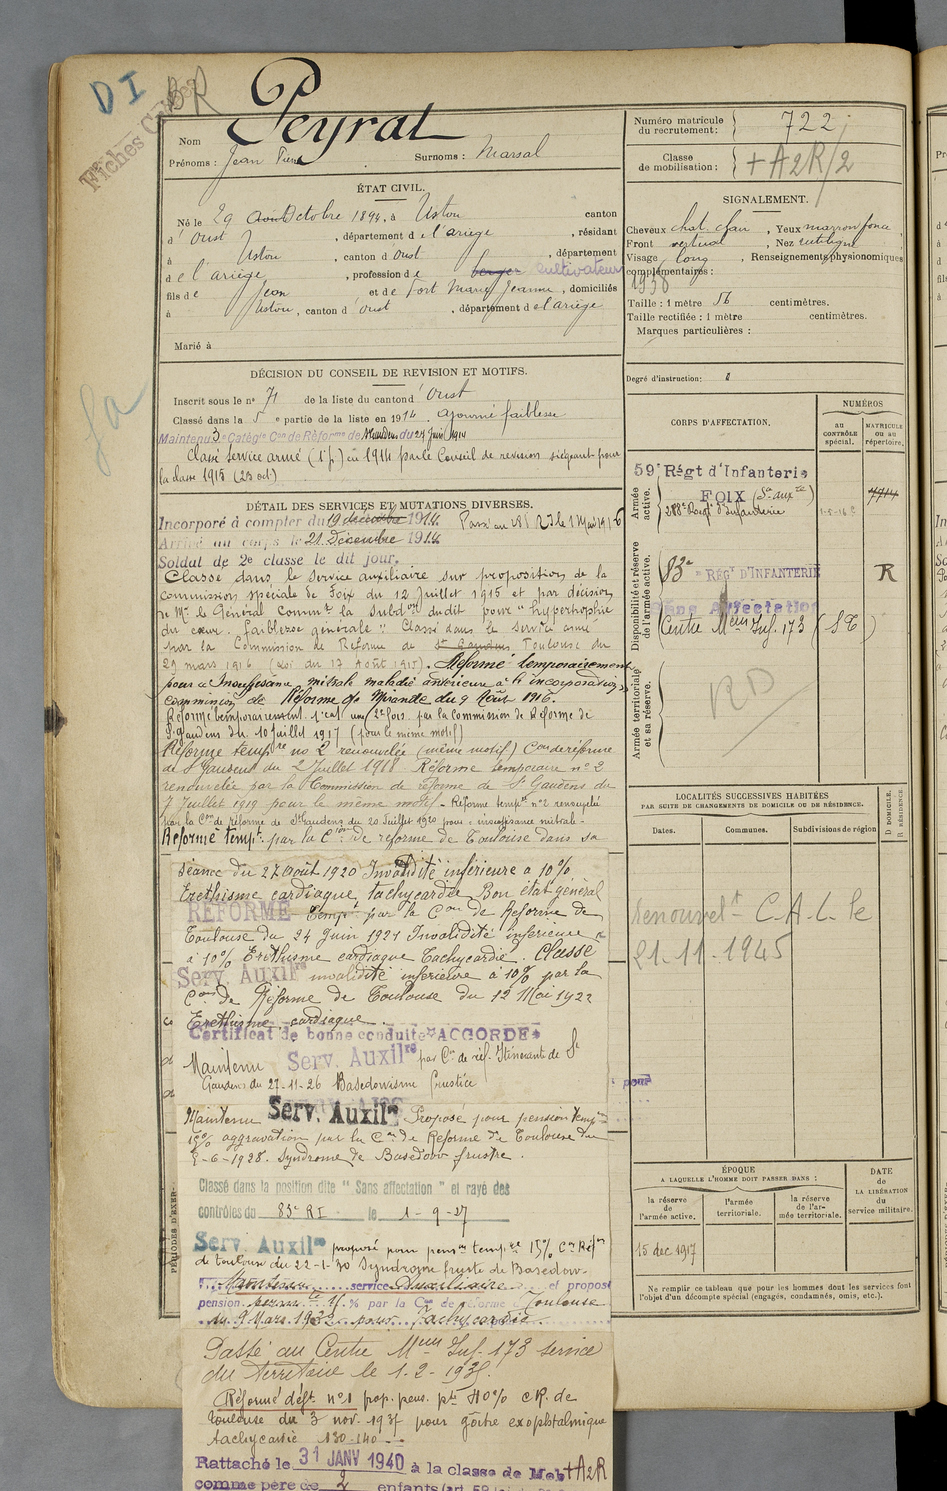 DI
BR
Fiches
Nom Peyrat
Prénoms : Jean Pierre Surnoms : Marsal
ÉTAT CIVIL.
Né le 29 Octobre 1894, à Ustou canton
d'Oust, département de l'ariège, résidant
à Ustou, canton d'Oust, département
de l'ariège, profession de berger cultivateur
fils de Jean et de Fort Marie Jeanne, domiciliés
à Ustou, canton d'Oust, département de l'ariège
Marié à
DÉCISION DU CONSEIL DE REVISION ET MOTIFS.
Inscrit sur le n° 71 de la liste du canton d'Oust
Classé dans la 5e partie de la liste en 1914. ajourné faiblesse
Maintenu 3e Catégie Con de Réforme de du 27 Juin 1914
Classé service armé (1 p.) en 1914 par le Conseil de revision siégeant pour
la classe 1915 (23 oct.)
DÉTAIL DES SERVICES ET MUTATIONS DIVERSES.
Incorporé à compter du 19 décembre 1914. Passé au 288 RI le 1 Mai 1916
Arrivé au corps le 21 Décembre 1914
Soldat de 2e classe le dit jour.
Classé dans le service auxiliaire sur proposition de la
commission spéciale de Foix du 12 Juillet 1915 et par décision
de Mr le Général Commt la Subdon dudit pour "hypertrophie
du cœur, faiblesse générale". Classé dans le service armé
par la Commission de Réforme de St Gaudens Toulouse du
29 mars 1916 (Loi du 17 Août 1915). Réformé temporairement
pour "Insuffisance mitrale maladie antérieure à l'incorporation"
commission de Réforme de Mirande du 9 Août 1916.
Réformé temporairement 1e cat. une (2e fois) par la Commission de Réforme de
St Gaudens du 10 Juillet 1917 (pour le même motif)
Réforme tempre no 2 renouvelée (même motif) Con de réforme
de St Gaudens du 2 Juillet 1918 Réforme temporaire n° 2
renouvelée par la Commission de réforme de St Gaudens du
7 Juillet 1919 pour le même motif - Réforme tempre n° 2 renouvelée
par la Con de réforme de St Gaudens du 20 Juillet 1920 pour : insuffisance mitrale -
Réformé tempt par la Con de réforme de Toulouse dans sa
séance du 27 août 1920 Invalidité inférieure à 10%
Erethisme cardiaque, tachycardie Bon état général
RÉFORMÉ Tempt par la Con de Réforme de
Toulouse du 24 Juin 1921 Invalidité inférieure
à 10% Erethisme cardiaque Tachycardie. Classé
Serv. Auxilre invalidité inférieure à 10% par la
Con de Réforme de Toulouse du 12 Mai 1922
Erethisme cardiaque.
Certificat de bonne conduite "ACCORDÉ"
Maintenu Serv. Auxilre par Con de réf. Itinérante de St
Gaudens du 27-11-26 Basedowisme frustre
Maintenu Serv. Auxilre Proposé pour pension tempre
15% aggravation par la Con de Réforme de Toulouse du
-6-1928. Syndrome de Basedow frustre.
Classé dans la position dite "Sans affectation" et rayé des
contrôles du 83e RI le 1-9-27
Serv. Auxilre proposé pour pension tempre 15% Con Réf
de toulouse du 22-1-30 Syndrome fruste de Basedow
Maintenu service Auxiliaire et proposé
pension % par la Con de réforme Toulouse
du 9 Mars 1932 pour Tachycardie.
Passé au Centre Meur Inf. 173 service
du territoire le 1-2-193
Réformé déft n° 1 prop. pens. pte 40% CR. de
Toulouse du 3 nov. 193 pour goître exophtalmique
tachycardie 130-140
Rattaché le 31 JANV 1940 à la classe de Mob +A2R
comme père de 2 enfants
PÉRIODES D'EXER
Numéro matricule du recrutement : 722
Classe de mobilisation : +A2R/2
SIGNALEMENT.
Cheveux chat. clair, Yeux marron foncé,
Front vertical, Nez rectiligne
Visage long, Renseignements physionomiques
complémentaires :
1938
Taille : 1 mètre 56 centimètres.
Taille rectifiée : 1 mètre centimètres.
Marques particulières :
Degré d'instruction : 2
CORPS D'AFFECTATION.
NUMÉROS
AU CONTRÔLE spécial.
MATRICULE OU AU répertoire.
Armée active.
59e Régt d'Infanterie
FOIX (Son auxre)
288e Régt d'Infanterie
Disponibilité et réserve de l'armée active.
83e RÉGt D'INFANTERIE
R
Sans Affectation
Centre Meur Inf. 173 (ST)
Armée territoriale et sa réserve.
RD
LOCALITÉS SUCCESSIVES HABITÉES
PAR SUITE DE CHANGEMENTS DE DOMICILE OU DE RÉSIDENCE.
Dates.
Communes.
Subdivisions de région
D DOMICILE.
R RÉSIDENCE
Renouvelt C.A.C. le
21.11.1945
pour
ÉPOQUE
A LAQUELLE L'HOMME DOIT PASSER DANS :
la réserve de l'armée active.
l'armée territoriale.
la réserve de l'armée territoriale.
DATE DE LA LIBÉRATION du service militaire.
15 dec 1917
Ne remplir ce tableau que pour les hommes dont les services font
l'objet d'un décompte spécial (engagés, condamnés, omis, etc.).